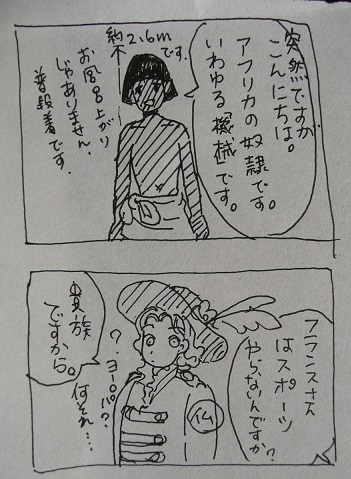 突然ですが
こんにちは。
アフリカの奴隷です。
いわゆる「機械」です。
約2.6mです。
お風呂上がり
じゃありません。
普段着です。
フランスさん
はスポーツ
やらないんですか?
仏
何それ…
貴族
ですから。